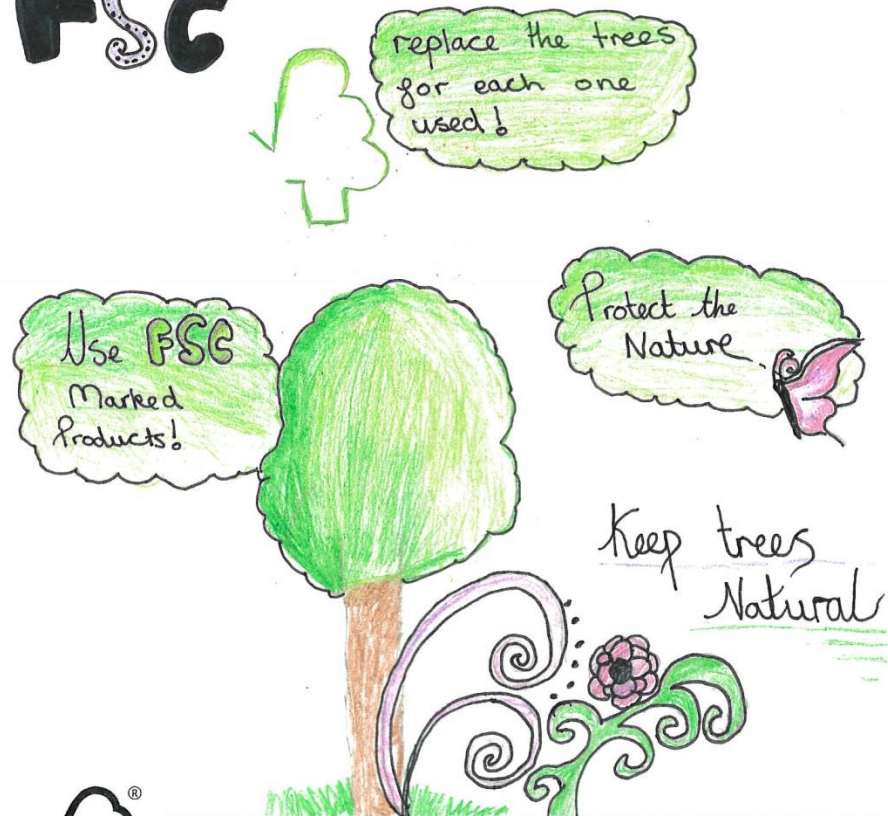 FSC
replace the trees
for each one
used!
Use FSC
Marked
Products!
Protect the
Nature
Keep trees
Natural
®